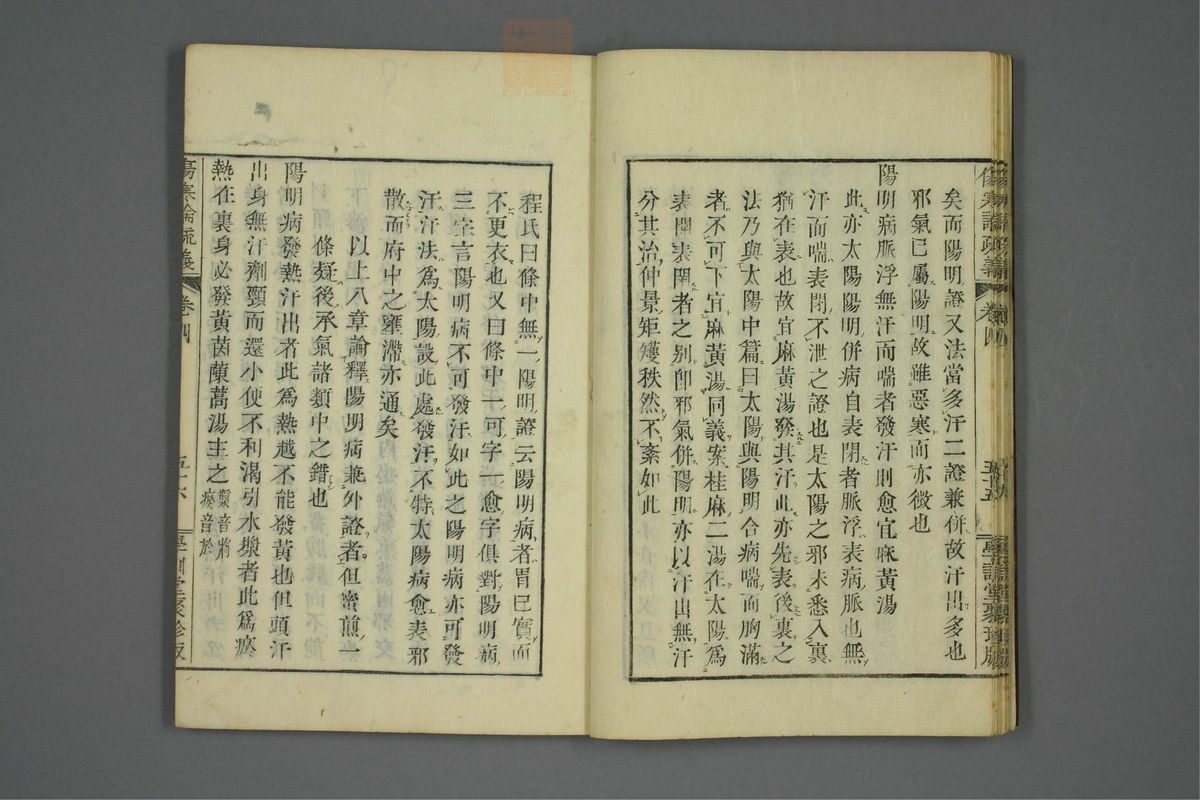 傷寒論疏義
卷四
五十五
學訓堂聚珍版
矣而陽明證又法當多汗二證兼併故汗出多也
邪氣已屬陽明故雖惡寒而亦微也
陽明病脈浮無汗而喘者發汗則愈宜麻黃湯
此亦太陽陽明併病自表閉者脈浮表病脈也無
汗而喘表閉不泄之證也是太陽之邪未悉入裏
猶在表也故宜麻黃湯發其汗此亦先表後裏之
法乃與太陽中篇曰太陽與陽明合病喘而胸滿
者不可下宜麻黃湯同義案桂麻二湯在太陽爲
表開表閉者之別卽邪氣併陽明亦以汗出無汗
分其治仲景矩矱秩然不紊如此
程氏曰條中無一陽明證云陽明病者胃已實而
不更衣也又曰條中一可字一愈字俱對陽明病
三字言陽明病不可發汗如此之陽明病亦可發
汗汗法爲太陽設此處發汗不特太陽病愈表邪
散而府中之壅滯亦通矣
以上八章論釋陽明病兼外證者但蜜煎一
條疑後承氣諸類中之錯也
陽明病發熱汗出者此爲熱越不能發黃也但頭汗
出身無汗劑頸而還小便不利渴引水漿者此爲瘀
熱在裏身必發黃茵蔯蒿湯主之
漿音將
瘀音於
傷寒論疏義
卷四
五十六
學訓堂聚珍版